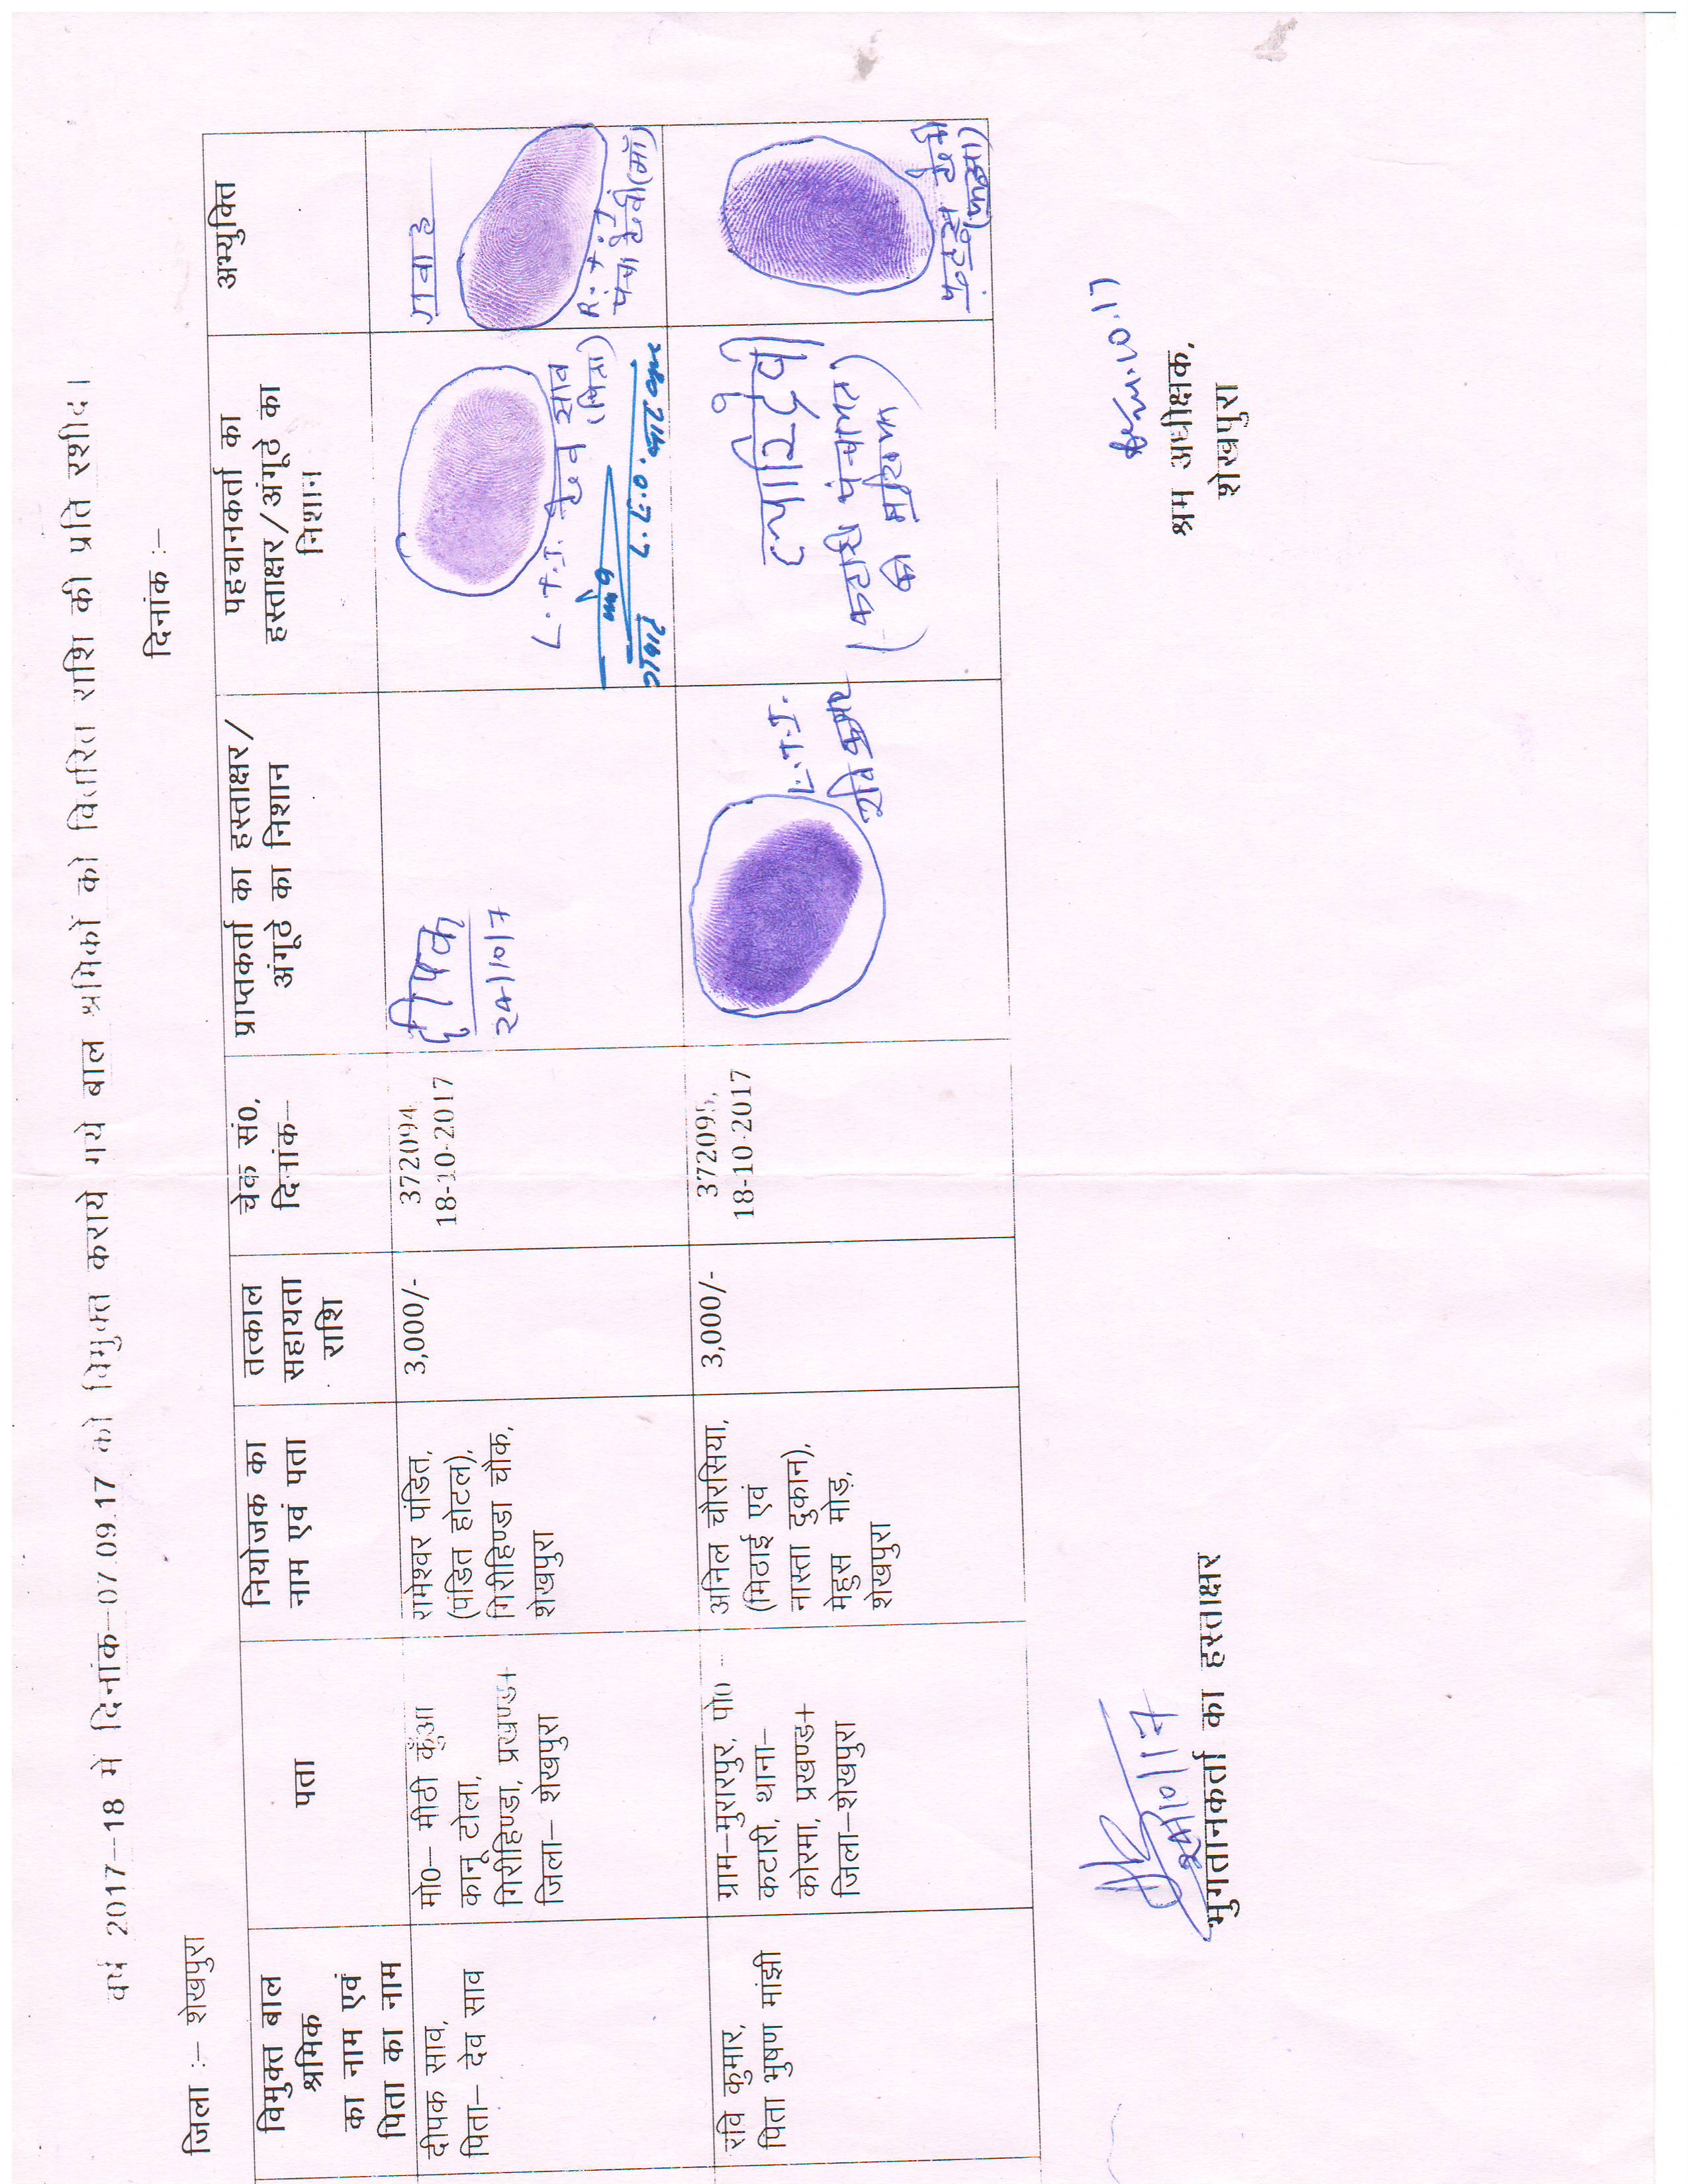 वर्ष 2017–18 में दिनांक–07.09.17 को विमुक्त कराये गये बाल श्रमिकों को वितरित राशि की प्रति रशीद।
जिला :– शेखपुरा
दिनांक :–
विमुक्त बाल
श्रमिक
का नाम एवं
पिता का नाम
पता
नियोजक का
नाम एवं पता
तत्काल
सहायता
राशि
चेक सं0,
दिनांक–
प्राप्तकर्ता का हस्ताक्षर/
अंगूठे का निशान
पहचानकर्ता का
हस्ताक्षर/अंगूठे का
निशान
अभ्युक्ति
दीपक साव,
पिता– देव साव
मो0– मीठी कुँआ
कानू टोला,
गिरीहिण्डा, प्रखण्ड+
जिला– शेखपुरा
रामेश्वर पंडित,
(पंडित होटल),
गिरीहिण्डा चौक,
शेखपुरा
3,000/-
372094,
18-10-2017
दीपक
24/10/17
L.T.I. देव साव
(पिता)
गवाह
R.T.I
देवी (माँ)
रवि कुमार,
पिता भुषण मांझी
ग्राम–मुरारपुर, पो0 –
कटारी, थाना–
कोरमा, प्रखण्ड+
जिला–शेखपुरा
अनिल चौरसिया,
(मिठाई एवं
नास्ता दुकान),
मेहुस मोड़,
शेखपुरा
3,000/-
372095,
18-10-2017
L.T.I.
रवि कुमार
(कटारी पंचायत)
की मुखिया
भुगतानकर्ता का हस्ताक्षर
24/10/17
श्रम अधीक्षक,
शेखपुरा